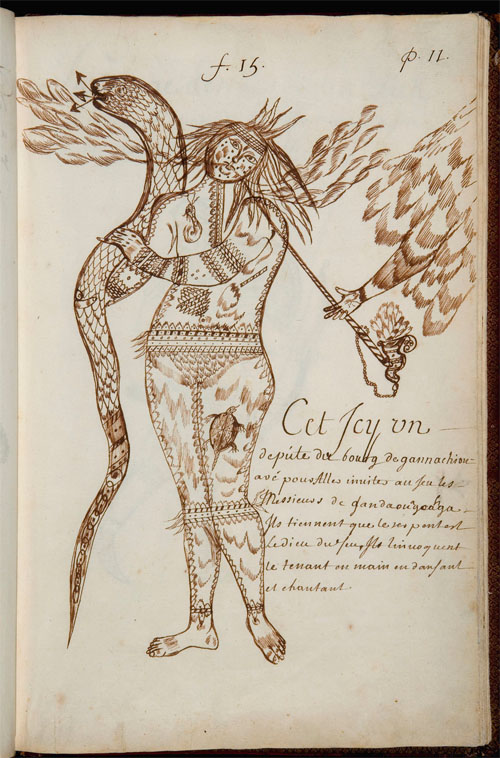 f. 15.
P. 11.
Cet Jcy un
depúte du bourg de gannachiou
avé pour Aller invite au Jeu les
Messieurs de gandaouagoahga.
Ils tiennent que le serpent est
Le dieu du feu, Ils L'invoquent
le tenant en main en dansant
et chantant